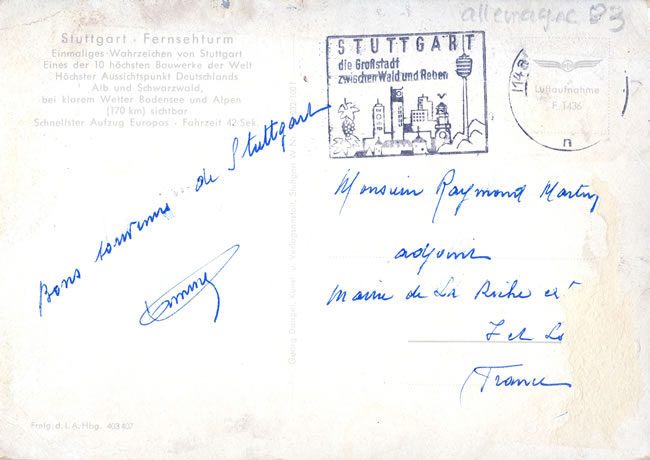 allemagne D3
Stuttgart · Fernsehturm
Einmaliges Wahrzeichen von Stuttgart
Eines der 10 höchsten Bauwerke der Welt
Höchster Aussichtspunkt Deutschlands
Alb und Schwarzwald,
bei klarem Wetter Bodensee und Alpen
(170 km) sichtbar
Schnellster Aufzug Europas - Fahrzeit 42 Sek.
STUTTGART
die Großstadt
zwischen Wald und Reben
Luftaufnahme
F 1436
n
Bons souvenirs de Stuttgart
Monsieur Raymond
adjoint
Mairie de La
France
Freig. d. L.A. Hbg. 403407